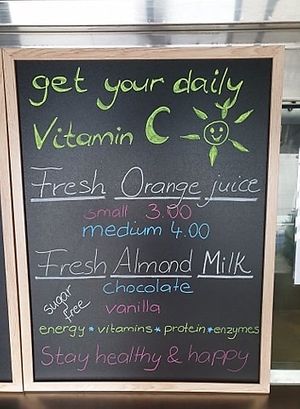 get your daily
Vitamin C
Fresh Orange juice
small 3.00
medium 4.00
Fresh Almond Milk
chocolate
sugar free
vanilla
energy * vitamins * protein * enzymes
Stay healthy & happy